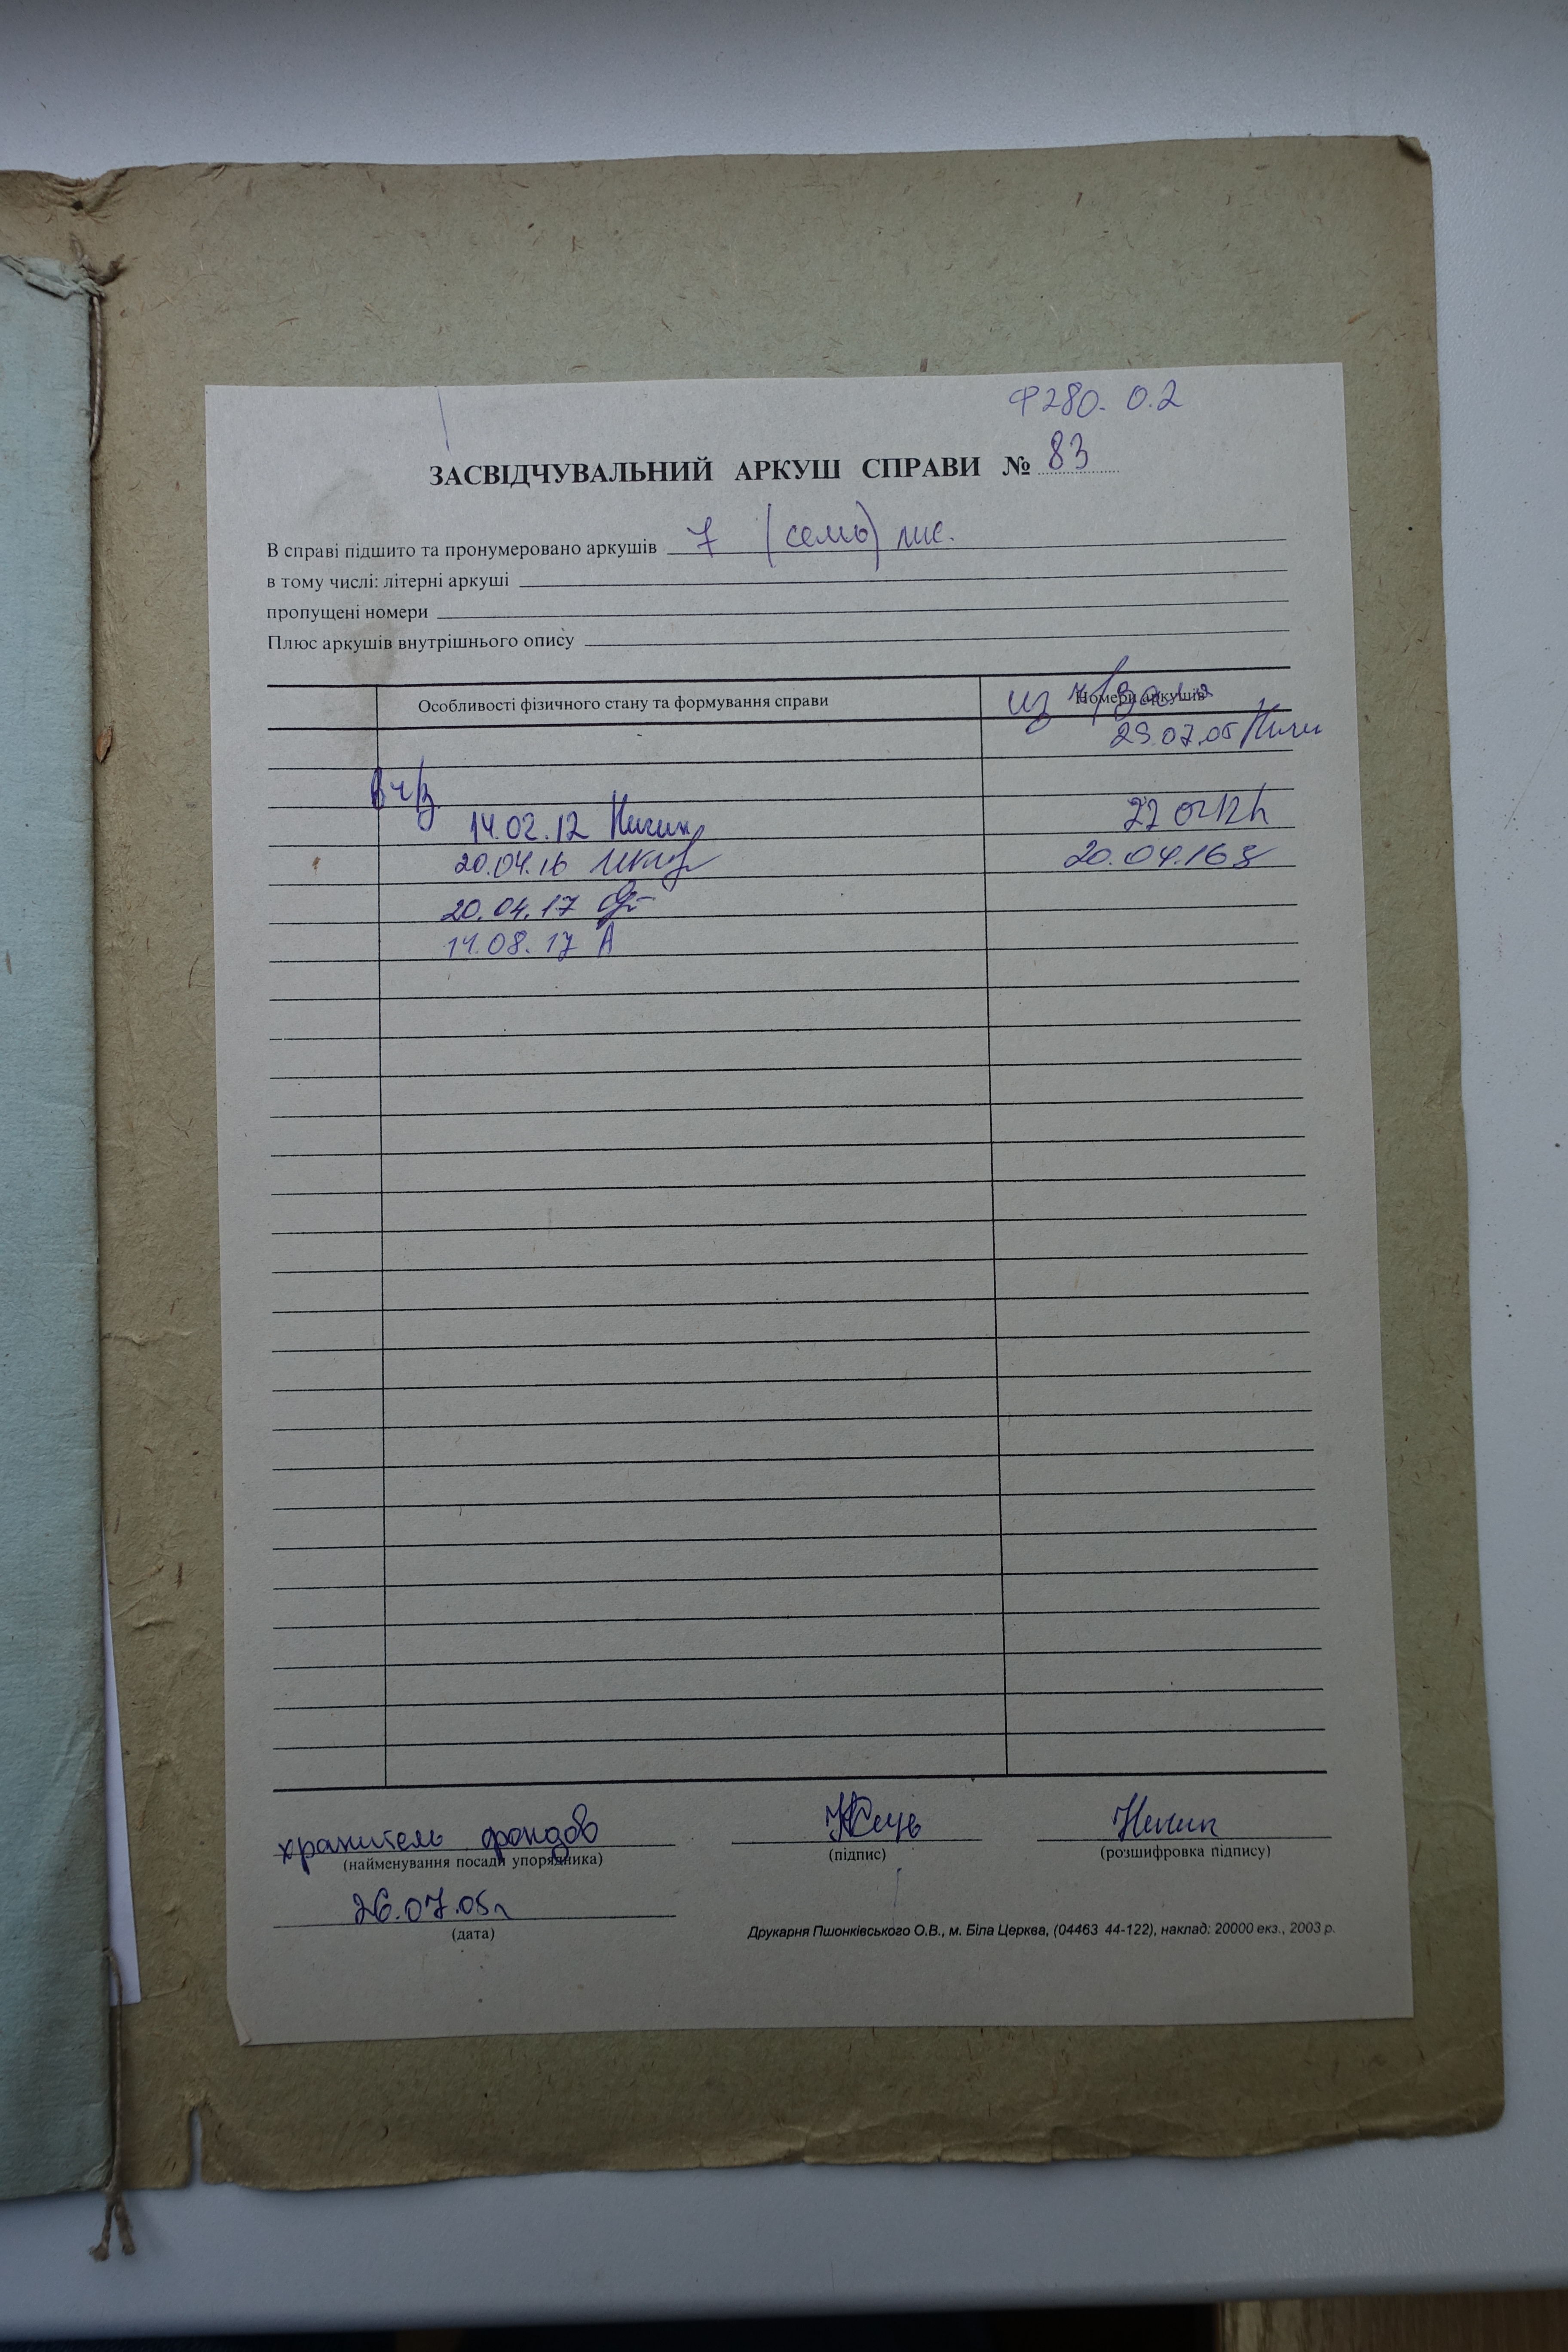 Ф280. О.2
ЗАСВІДЧУВАЛЬНИЙ АРКУШ СПРАВИ № 83
В справі підшито та пронумеровано аркушів 7 (семь) лис.
в тому числі: літерні аркуші
пропущені номери
Плюс аркушів внутрішнього опису
Особливості фізичного стану та формування справи Номери аркушів
из ч/зала
29.07.05
В ч/з
14.02.12 22 02 12
20.04.16 20.04.16
20.04.17
14.08.17 А
хранитель фондов
(найменування посади упорядника) (підпис) (розшифровка підпису)
26.07.05г
(дата)
Друкарня Пшонківського О.В., м. Біла Церква, (04463 44-122), наклад: 20000 екз., 2003 р.